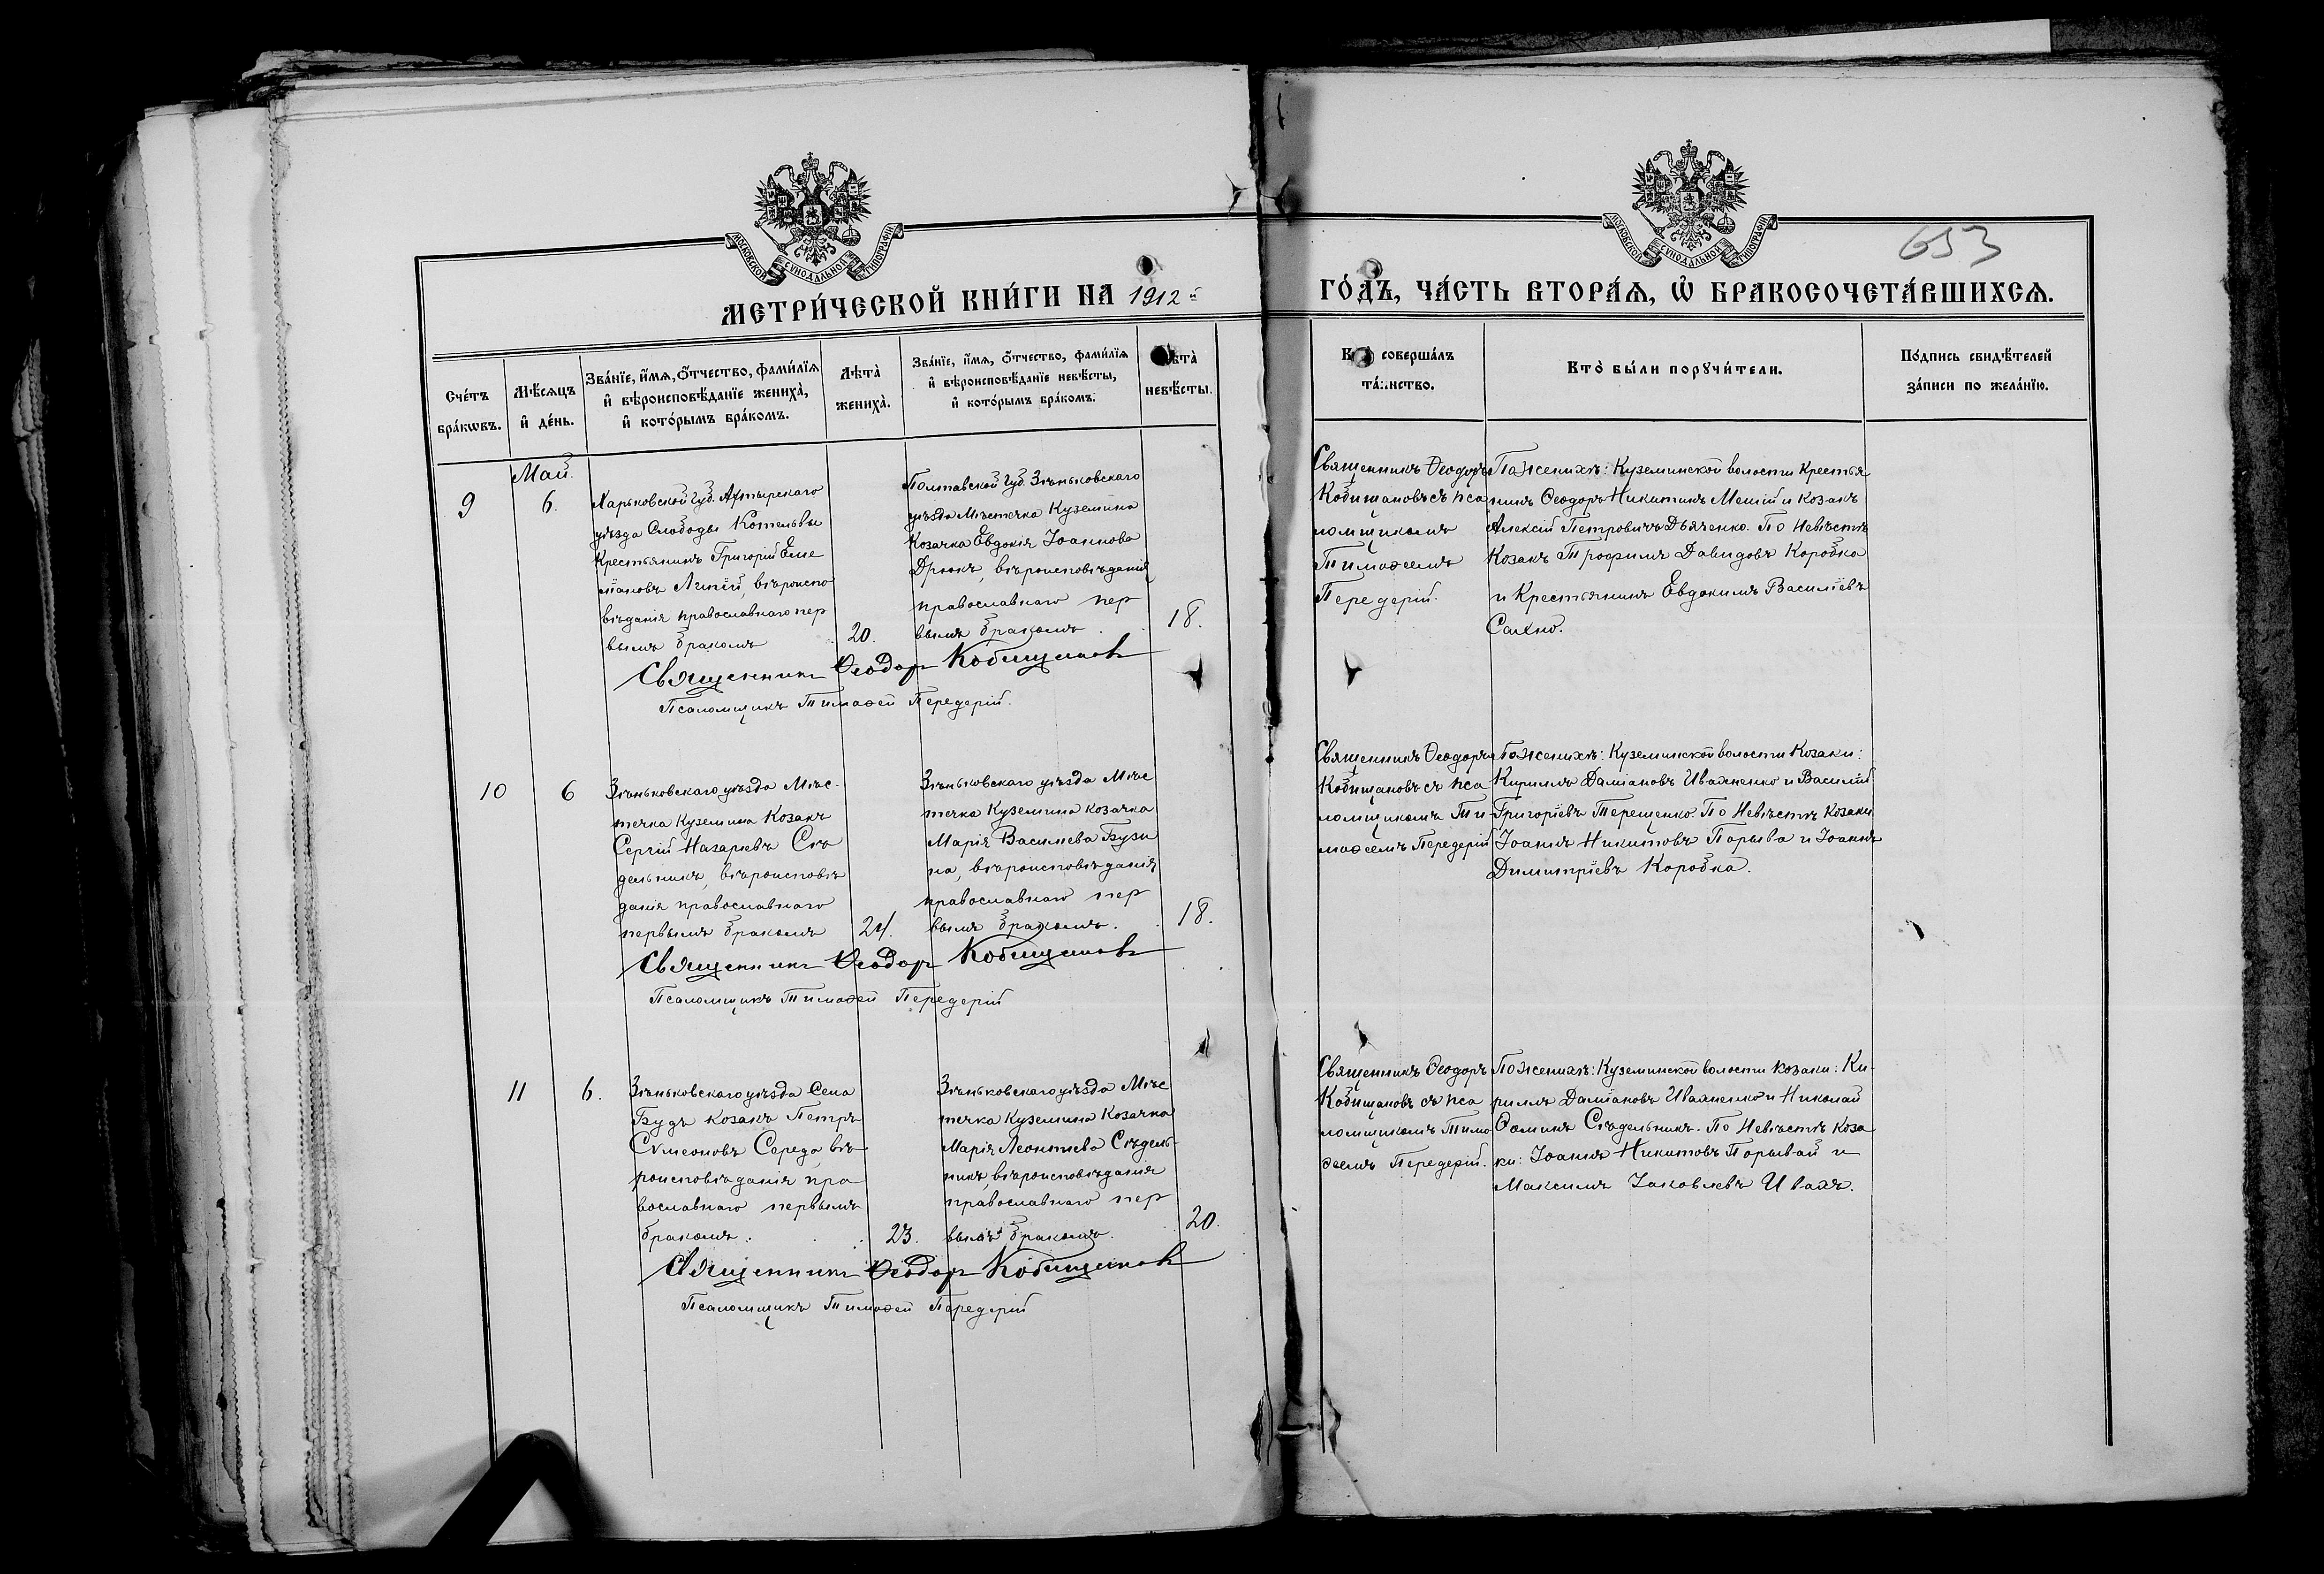 МОСКОВСКОЙ СѴНОДАЛЬНОЙ ТИПОГРАФІИ
МОСКОВСКОЙ СѴНОДАЛЬНОЙ ТИПОГРАФІИ
653
МЕТРИ́ЧЕСКОЙ КНИ́ГИ НА 1912 й
ГО́ДЪ, ЧА́СТЬ ВТОРА́Ѧ, Ѡ҆ БРАКОСОЧЕТА́ВШИХСѦ.
Сче́тъ
бра́кѡвъ.
Мѣ́сѧцъ
и҆ де́нь.
Зва́нїе, и҆́мѧ, ѻ҆́тчество, фами́лїѧ
и҆ вѣроисповѣ́данїе жениха̀,
и҆ кото́рымъ бра́комъ.
Лѣта̀
жениха̀.
Зва́нїе, и҆́мѧ, ѻ҆́тчество, фами́лїѧ
и҆ вѣроисповѣ́данїе невѣ́сты,
и҆ кото́рымъ бра́комъ.
невѣ́сты.
соверша́лъ
Кто̀ бы́ли порꙋчи́тели.
По́дпись свидѣ́телей
за́писи по жела́нїю.
Май.
9
6.
Харьковской губ. Ахтырскаго
уѣзда Слободы Котельвы
Крестьянинъ Григорій Еме
ліановъ Липѣй, вѣроиспо
вѣданія православнаго пер
вымъ бракомъ
20.
Полтавской губ. Зѣньковскаго
уѣзда Мѣстечка Куземина
Козачка Евдокія Іоаннова
Дрюкъ, вѣроисповѣданія
православнаго пер
вымъ бракомъ.
18.
Священникъ Ѳеодоръ
Кобищановъ съ пса
ломщикомъ
Тимоѳеемъ
Передерій.
По женихѣ: Куземинской волости Крестья
нинъ Ѳеодоръ Никитинъ и Козакъ
Алексій Петровичъ Дьяченко. По Невѣстѣ
Козакъ Трофимъ Давидовъ Коробка
и Крестьянинъ Евдокимъ Василіевъ
Сахно.
Священникъ Ѳеодоръ Кобищановъ
Псаломщикъ Тимоѳей Передерій.
10
6
Зѣньковскаго уѣзда Мѣс-
течка Куземина Козакъ
Сергій Назаріевъ Сѣ
дельникъ, вѣроисповѣ
данія православнаго
первымъ бракомъ
24.
Зѣньковскаго уѣзда Мѣс
течка Куземина козачка
Марія Василіева Бузи
на, вѣроисповѣданія
православнаго пер
вымъ бракомъ.
18.
Священникъ Ѳеодоръ
Кобищановъ съ пса
ломщикомъ Ти
моѳеемъ Передерій
По женихѣ: Куземинской волости Козаки:
Кириллъ Даміановъ Ивахненко и Василій
Григоріевъ Терещенко. По Невѣстѣ Козаки
Іоаннъ Никитовъ Порыва и Іоаннъ
Димитріевъ Коробка.
Священникъ Ѳеодоръ Кобищановъ
Псаломщикъ Тимоѳей Передерій
11
6.
Зѣньковскаго уѣзда Села
Будъ козакъ Петръ
Сѵмеоновъ Середа, вѣ
роисповѣданія пра
вославнаго первымъ
бракомъ.
23.
Зѣньковскаго уѣзда Мѣс
течка Куземина Козачка
Марія Леонтіева Сѣдель-
никъ, вѣроисповѣданія
православнаго пер
вымъ бракомъ.
20.
Священникъ Ѳеодоръ
Кобищановъ съ пса
ломщикомъ Тимо
ѳеемъ Передерій.
По женихѣ: Куземинской волости козаки: Ки-
риллъ Даміановъ Ивахненко и Николай
Ѳоминъ Сѣдельникъ. По Невѣстѣ Коза
ки: Іоаннъ Никитовъ Порывай и
Максимъ Іаковлевъ Ивахъ.
Священникъ Ѳеодоръ Кобищановъ
Псаломщикъ Тимоѳей Передерій